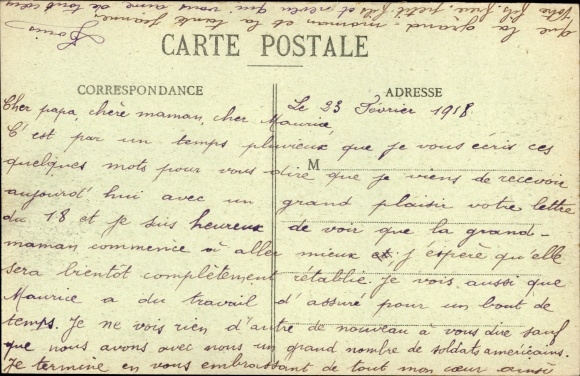 CARTE POSTALE
CORRESPONDANCE
ADRESSE
M
Le 23 Février 1918.
Cher papa, chère maman, cher Maurice,
C'est par un temps pluvieux que je vous écris ces
quelques mots pour vous dire que je viens de recevoir
aujourd'hui avec un grand plaisir votre lettre
du 18 et je suis heureux de voir que la grand-
maman commence à aller mieux et j'espère qu'elle
sera bientôt complètement rétablie. Je vois aussi que
Maurice a du travail d'assuré pour un bout de
temps. Je ne vois rien d'autre de nouveau à vous dire sauf
que nous avons avec nous un grand nombre de soldats américains.
Je termine en vous embrassant de tout mon cœur ainsi
que la grand-maman et la tante Jeanne.
Votre fils, frère, petit-fils et neveu qui vous aime de tout cœur
Louis